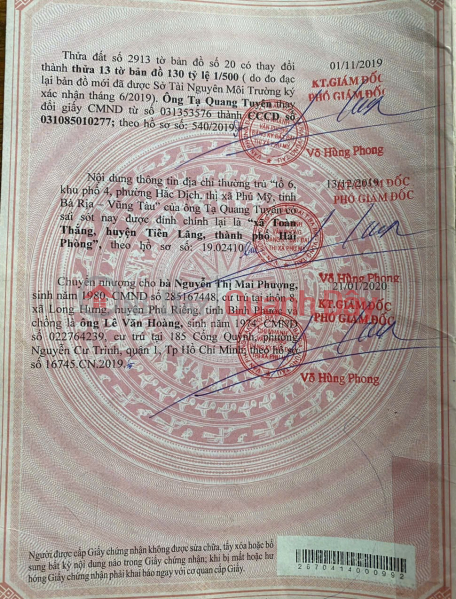 Thửa đất số 2913 tờ bản đồ số 20 có thay đổi
thành thửa 13 tờ bản đồ 130 tỷ lệ 1/500 ( do đo đạc
lại bản đồ mới đã được Sở Tài Nguyên Môi Trường ký
xác nhận tháng 6/2019). Ông Tạ Quang Tuyên thay
đổi giấy CMND từ số 031353576 thành CCCD số
031085010277; theo hồ sơ số: 540/2019.
01/11/2019
KT.GIÁM ĐỐC
PHÓ GIÁM ĐỐC
Võ Hùng Phong
Nội dung thông tin địa chỉ thường trú "tổ 6,
khu phố 4, phường Hắc Dịch, thị xã Phú Mỹ, tỉnh
Bà Rịa – Vũng Tàu" của ông Tạ Quang Tuyên có
sai sót nay được đính chính lại là "xã Toàn
Thắng, huyện Tiên Lãng, thành phố Hải
Phòng", theo hồ sơ số: 19.02410
PHÓ GIÁM ĐỐC
Võ Hùng Phong
Chuyển nhượng cho bà Nguyễn Thị Mai Phượng,
sinh năm 1980, CMND số 285167448, cư trú tại thôn 8,
xã Long Hưng, huyện Phú Riềng, tỉnh Bình Phước và
chồng là ông Lê Văn Hoàng, sinh năm 1974, CMND
số 022764239, cư trú tại 185 Cống Quỳnh, phường
Nguyễn Cư Trinh, quận 1, Tp Hồ Chí Minh; theo hồ sơ
số 16745.CN.2019.
21/01/2020
KT.GIÁM ĐỐC
PHÓ GIÁM ĐỐC
Võ Hùng Phong
Người được cấp Giấy chứng nhận không được sửa chữa, tẩy xóa hoặc bổ
sung bất kỳ nội dung nào trong Giấy chứng nhận; khi bị mất hoặc hư
hỏng Giấy chứng nhận phải khai báo ngay với cơ quan cấp Giấy.
2070414000992